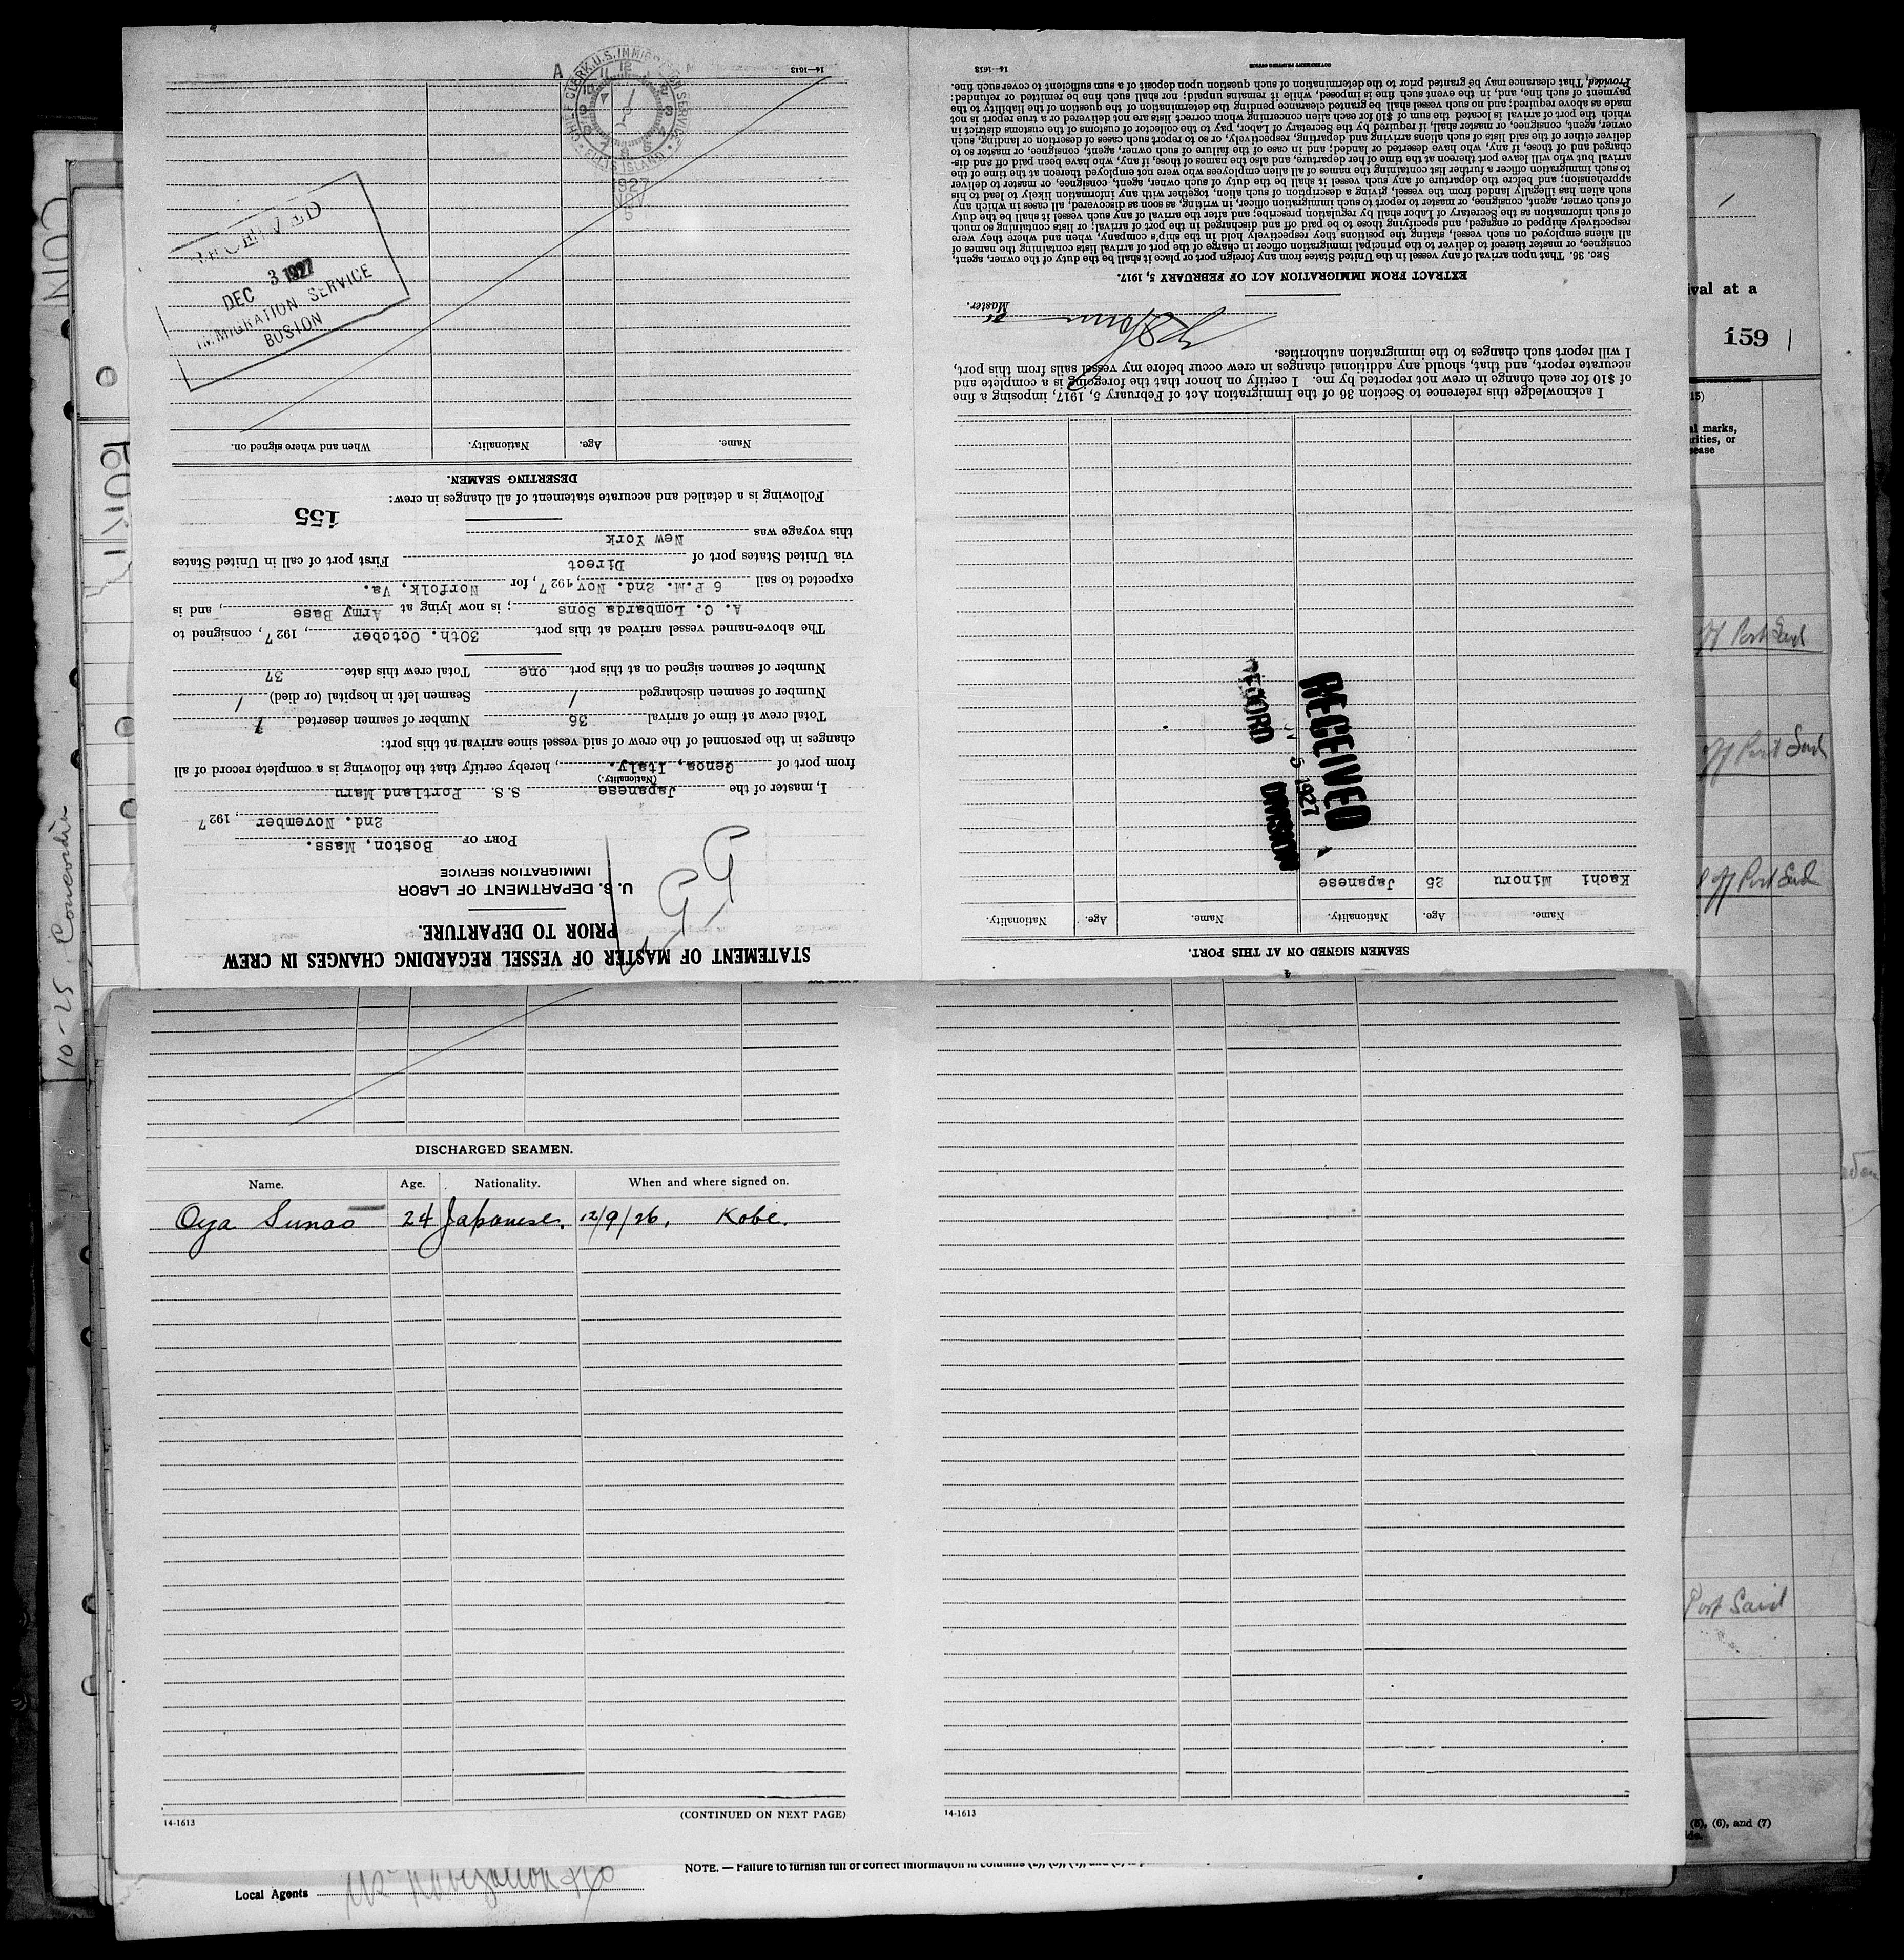 STATEMENT OF MASTER OF VESSEL REGARDING CHANGES IN CREW
PRIOR TO DEPARTURE.
U. S. DEPARTMENT OF LABOR
IMMIGRATION SERVICE
PORT OF Boston, Mass.
2nd. November, 1927
I, master of the Japanese S. S. Portland Maru
(Nationality.)
from port of Genoa, Italy., hereby certify that the following is a complete record of all
changes in the personnel of the crew of said vessel since arrival at this port:
Total crew at time of arrival 36 Number of seamen deserted
Number of seamen discharged / Seamen left in hospital (or died) /
Number of seamen signed on at this port one Total crew this date 37
The above-named vessel arrived at this port 30th. October, 1927, consigned to
A. C. Lombards Sons; is now lying at Army Base, and is
expected to sail 6 P.M. 2nd. Nov, 1927, for Norfolk, Va.
via United States port of Direct First port of call in United States
this voyage was New York
155
Following is a detailed and accurate statement of all changes in crew:
DESERTING SEAMEN.
Name. Age. Nationality. When and where signed on.
RECEIVED
DEC 3 1927
IMMIGRATION SERVICE
BOSTON
CHIEF CLERK, U.S. IMMIGRATION SERVICE
ELLIS ISLAND
1927
NOV
5
A
14—1613
SEAMEN SIGNED ON AT THIS PORT.
Name. Age. Nationality. Name. Age. Nationality.
Kachi Minoru 25 Japanese
RECEIVED
5 1927
RECORD DIVISION
I acknowledge this reference to Section 36 of the Immigration Act of February 5, 1917, imposing a fine
of $10 for each change in crew not reported by me. I certify on honor that the foregoing is a complete and
accurate report, and that, should any additional changes in crew occur before my vessel sails from this port,
I will report such changes to the immigration authorities.
Master.
EXTRACT FROM IMMIGRATION ACT OF FEBRUARY 5, 1917.
SEC. 36. That upon arrival of any vessel in the United States from any foreign port or place it shall be the duty of the owner, agent,
consignee, or master thereof to deliver to the principal immigration officer in charge of the port of arrival lists containing the names of
all aliens employed on such vessel, stating the positions they respectively hold in the ship's company, when and where they were
respectively shipped or engaged, and specifying those to be paid off and discharged in the port of arrival; or lists containing so much
of such information as the Secretary of Labor shall by regulation prescribe; and after the arrival of any such vessel it shall be the duty
of such owner, agent, consignee, or master to report to such immigration officer, in writing, as soon as discovered, all cases in which any
such alien has illegally landed from the vessel, giving a description of such alien, together with any information likely to lead to his
apprehension; and before the departure of any such vessel it shall be the duty of such owner, agent, consignee, or master to deliver
to such immigration officer a further list containing the names of all alien employees who were not employed thereon at the time of the
arrival but who will leave port thereon at the time of her departure, and also the names of those, if any, who have been paid off and dis-
charged and of those, if any, who have deserted or landed; and in case of the failure of such owner, agent, consignee, or master so to
deliver either of the said lists of such aliens arriving and departing, respectively, or so to report such cases of desertion or landing, such
owner, agent, consignee, or master shall, if required by the Secretary of Labor, pay to the collector of customs of the customs district in
which the port of arrival is located the sum of $10 for each alien concerning whom correct lists are not delivered or a true report is not
made as above required; and no such vessel shall be granted clearance pending the determination of the question of the liability to the
payment of such fine, and, in the event such fine is imposed, while it remains unpaid; nor shall such fine be remitted or refunded:
Provided, That clearance may be granted prior to the determination of such question upon deposit of a sum sufficient to cover such fine.
14—1613
GOVERNMENT PRINTING OFFICE
DISCHARGED SEAMEN.
Name. Age. Nationality. When and where signed on.
Oya Sunao 24 Japanese. 12/9/26, Kobe.
14-1613 (CONTINUED ON NEXT PAGE)
14-1613
10-25 Concordia
ival at a
159
15)
al marks,
rities, or
sease
off Port Said
off Port Said
off Port Said
Port Said
(5), (6), and (7)
NOTE. — Failure to furnish full or correct information in columns
Local Agents